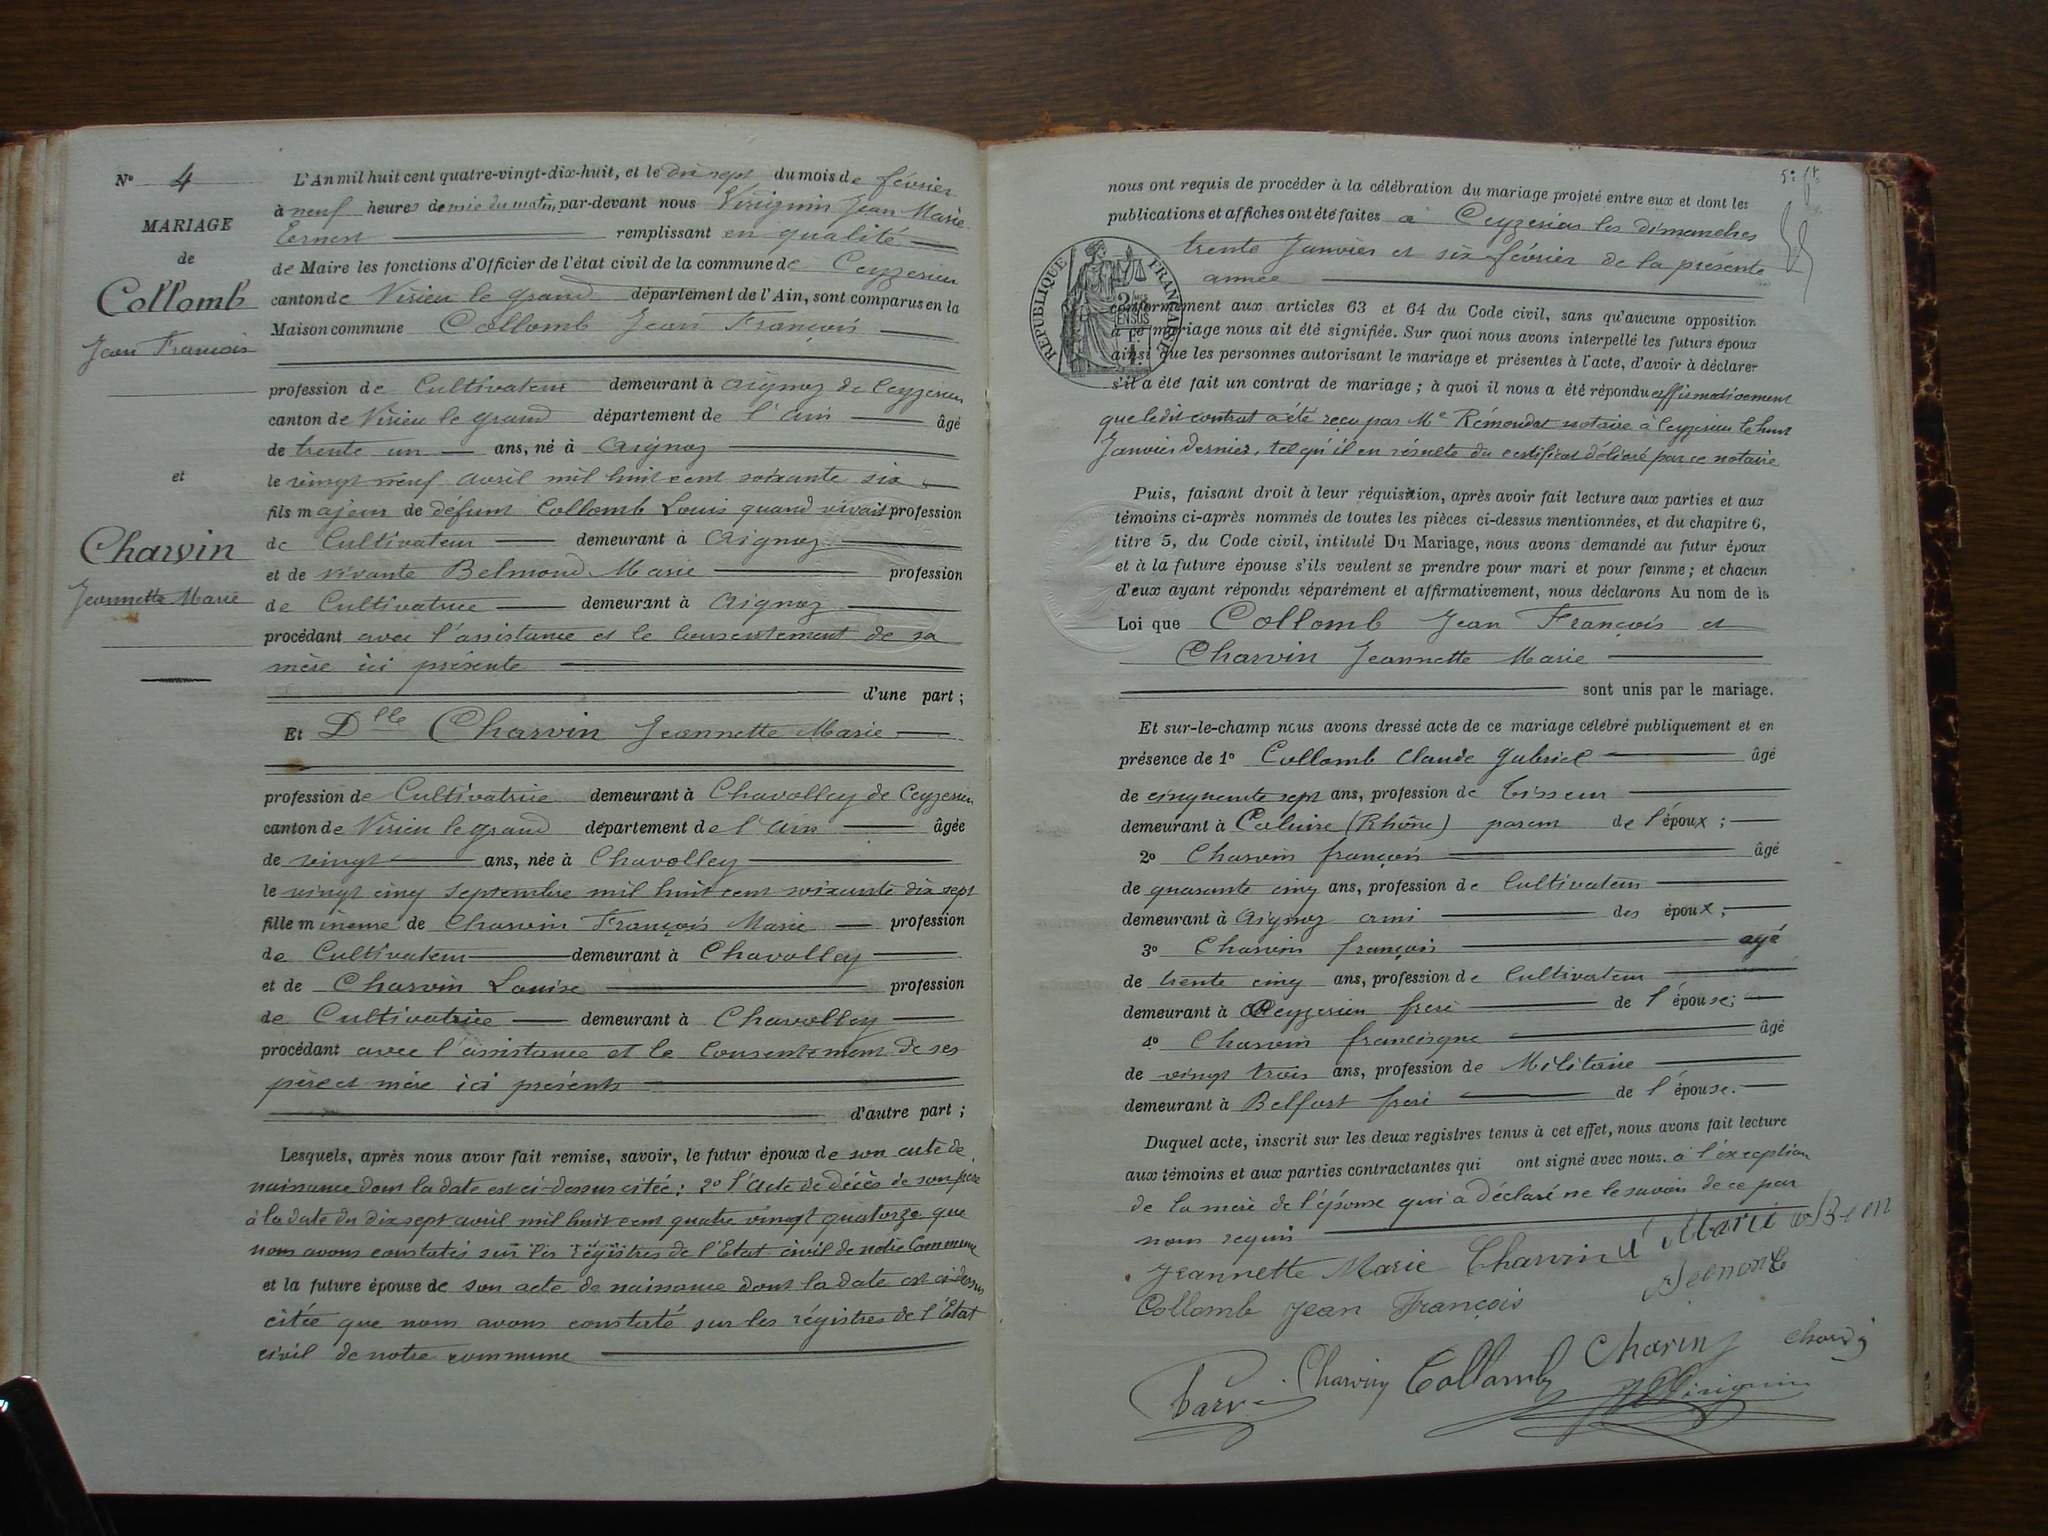 N° 4
MARIAGE
de
Collomb
Jean François
et
Charvin
Jeannette Marie
L'An mil huit cent quatre-vingt-dix-huit, et le dix sept du mois de février
à neuf heures demie du matin, par-devant nous Virignin Jean Marie
Ernest remplissant en qualité
de Maire les fonctions d'Officier de l'état civil de la commune de Ceyzerieu
canton de Virieu le grand département de l'Ain, sont comparus en la
Maison commune Collomb Jean François
profession de Cultivateur demeurant à Aignoz de Ceyzerieu
canton de Virieu le grand département de l'Ain âgé
de trente un ans, né à Aignoz
le vingt neuf avril mil huit cent soixante six
fils majeur de défunt Collomb Louis quand vivait profession
de Cultivateur demeurant à Aignoz
et de vivante Belmond Marie profession
de Cultivatrice demeurant à Aignoz
procédant avec l'assistance et le consentement de sa
mère ici présente
d'une part ;
Et Dlle Charvin Jeannette Marie
profession de Cultivatrice demeurant à Chavolley de Ceyzerieu
canton de Virieu le grand département de l'Ain âgée
de vingt ans, née à Chavolley
le vingt cinq septembre mil huit cent soixante dix sept
fille mineure de Charvin François Marie profession
de Cultivateur demeurant à Chavolley
et de Charvin Louise profession
de Cultivatrice demeurant à Chavolley
procédant avec l'assistance et le consentement de ses
père et mère ici présents
d'autre part ;
Lesquels, après nous avoir fait remise, savoir, le futur époux de son acte de
naissance dont la date est ci-dessus citée ; 2° l'acte de décès de son père
à la date du dix sept avril mil huit cent quatre vingt quatorze que
nous avons constatés sur les régistres de l'Etat civil de notre Commune
et la future épouse de son acte de naissance dont la date est ci-dessus
citée que nous avons constaté sur les régistres de l'Etat
civil de notre commune
nous ont requis de procéder à la célébration du mariage projeté entre eux et dont les
publications et affiches ont été faites à Ceyzerieu les dimanches
trente Janvier et six février de la présente
année
RÉPUBLIQUE FRANÇAISE
conformément aux articles 63 et 64 du Code civil, sans qu'aucune opposition
à ce mariage nous ait été signifiée. Sur quoi nous avons interpellé les futurs époux
ainsi que les personnes autorisant le mariage et présentes à l'acte, d'avoir à déclarer
s'il a été fait un contrat de mariage ; à quoi il nous a été répondu affirmativement
que ledit contrat a été reçu par Me Rémondat notaire à Ceyzerieu le huit
Janvier dernier, tel qu'il en résulte du certificat délivré par ce notaire
Puis, faisant droit à leur réquisition, après avoir fait lecture aux parties et aux
témoins ci-après nommés de toutes les pièces ci-dessus mentionnées, et du chapitre 6,
titre 5, du Code civil, intitulé Du Mariage, nous avons demandé au futur époux
et à la future épouse s'ils veulent se prendre pour mari et pour femme ; et chacun
d'eux ayant répondu séparément et affirmativement, nous déclarons Au nom de la
Loi que Collomb Jean François et
Charvin Jeannette Marie
sont unis par le mariage.
Et sur-le-champ nous avons dressé acte de ce mariage célébré publiquement et en
présence de 1° Collomb Claude Gabriel âgé
de cinquante sept ans, profession de Tisseur
demeurant à Caluire (Rhône) parent de l'époux ;
2° Charvin françois âgé
de quarante cinq ans, profession de Cultivateur
demeurant à Aignoz ami des époux ;
3° Charvin françois agé
de trente cinq ans, profession de Cultivateur
demeurant à Ceyzerieu frere de l'épouse ;
4° Charvin francisque âgé
de vingt trois ans, profession de Militaire
demeurant à Belfort frere de l'épouse.
Duquel acte, inscrit sur les deux registres tenus à cet effet, nous avons fait lecture
aux témoins et aux parties contractantes qui ont signé avec nous. à l'exception
de la mère de l'épouse qui a déclaré ne le savoir de ce par
nous requis
Jeannette Marie Charvin Marie
Collomb Jean François
Charvin Collomb Charvin
Virignin